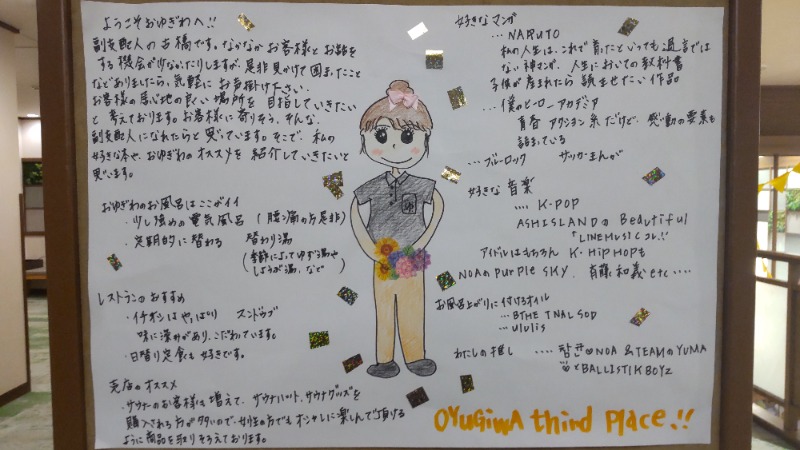 ようこそおゆぎわへ!!
副支配人の古橋です。なかなかお客様とお話を
する機会が少なかたりしますが、是非見かけて困まったこと
などありましたら、気軽にお声掛け下さい。
お客様の居心地の良い場所を目指していきたい
と考えております。お客様に寄りそう、そんな、
副支配人になれたらと思っています。そこで、私の
好きな本や、おゆぎわのオススメを紹介していきたいと
思います。
おゆぎわのお風呂はここがイイ
・少し強めの電気風呂(腰痛の方是非)
・定期的に替わる 替わり湯
(季節によってゆず湯や
しょうが湯、など)
レストランのおすすめ
・イチオシはやっぱり スンドゥブ
味に深みがあり、こだわっています。
・日替り定食も好きです。
売店のオススメ
・サウナーのお客様も増えて、サウナハット、サウナグッズを
購入される方が多いので、女性の方でもオシャレに楽しんで頂ける
ように商品を取りそろえております。
好きなマンガ
…NARUTO
私の人生は、これで育ったといっても過言では
ない神マンガ、人生においての教科書
子供が産まれたら読ませたい作品
…僕のヒーローアカデミア
青春アクション系だけど、感動の要素も
詰まっている
…ブルーロック サッカーまんが
好きな音楽
…K-POP
ASHISLANDのBeautiful
「LINEMUSICコレ!!」
アイドルはもちろん K-HIPHOPも
NOAのPurple SKY、斉藤和義etc....
お風呂上がりに付けるオイル
…ululis
わたしの推し ....참 ♡NOA &TEAMのYUMA
♡とBALLISTIK BOYZ
ゆ
OYUGIWA third Place.!!